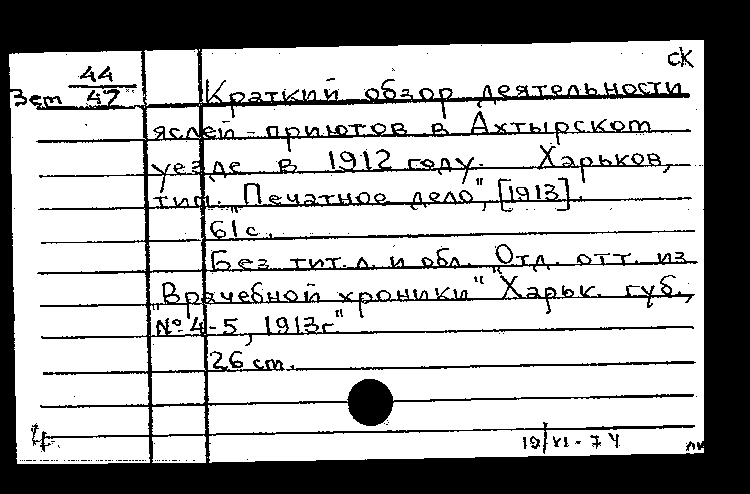 СК
44
Зет 47
Краткий обзор деятельности
яслей-приютов в Ахтырском
уезде в 1912 году. Харьков,
тип. "Печатное дело", [1913].
61 с.
Без тит. л. и обл. Отд. отт. из
"Врачебной хроники" "Харьк. губ.,
№ 4-5, 1913г"
26 ст.
19/VI-74